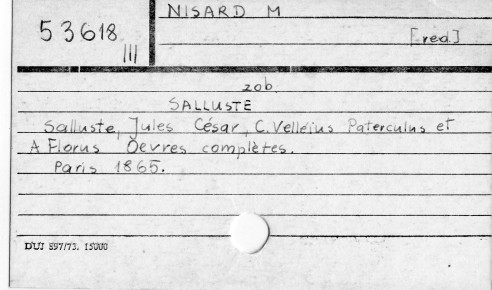 NISARD M
53618
III
[red]
zob.
SALLUSTE
Salluste, Jules César, C. Velleius Paterculus et
A Florus Oevres complètes.
Paris 1865.
DUI 897/73. 15000